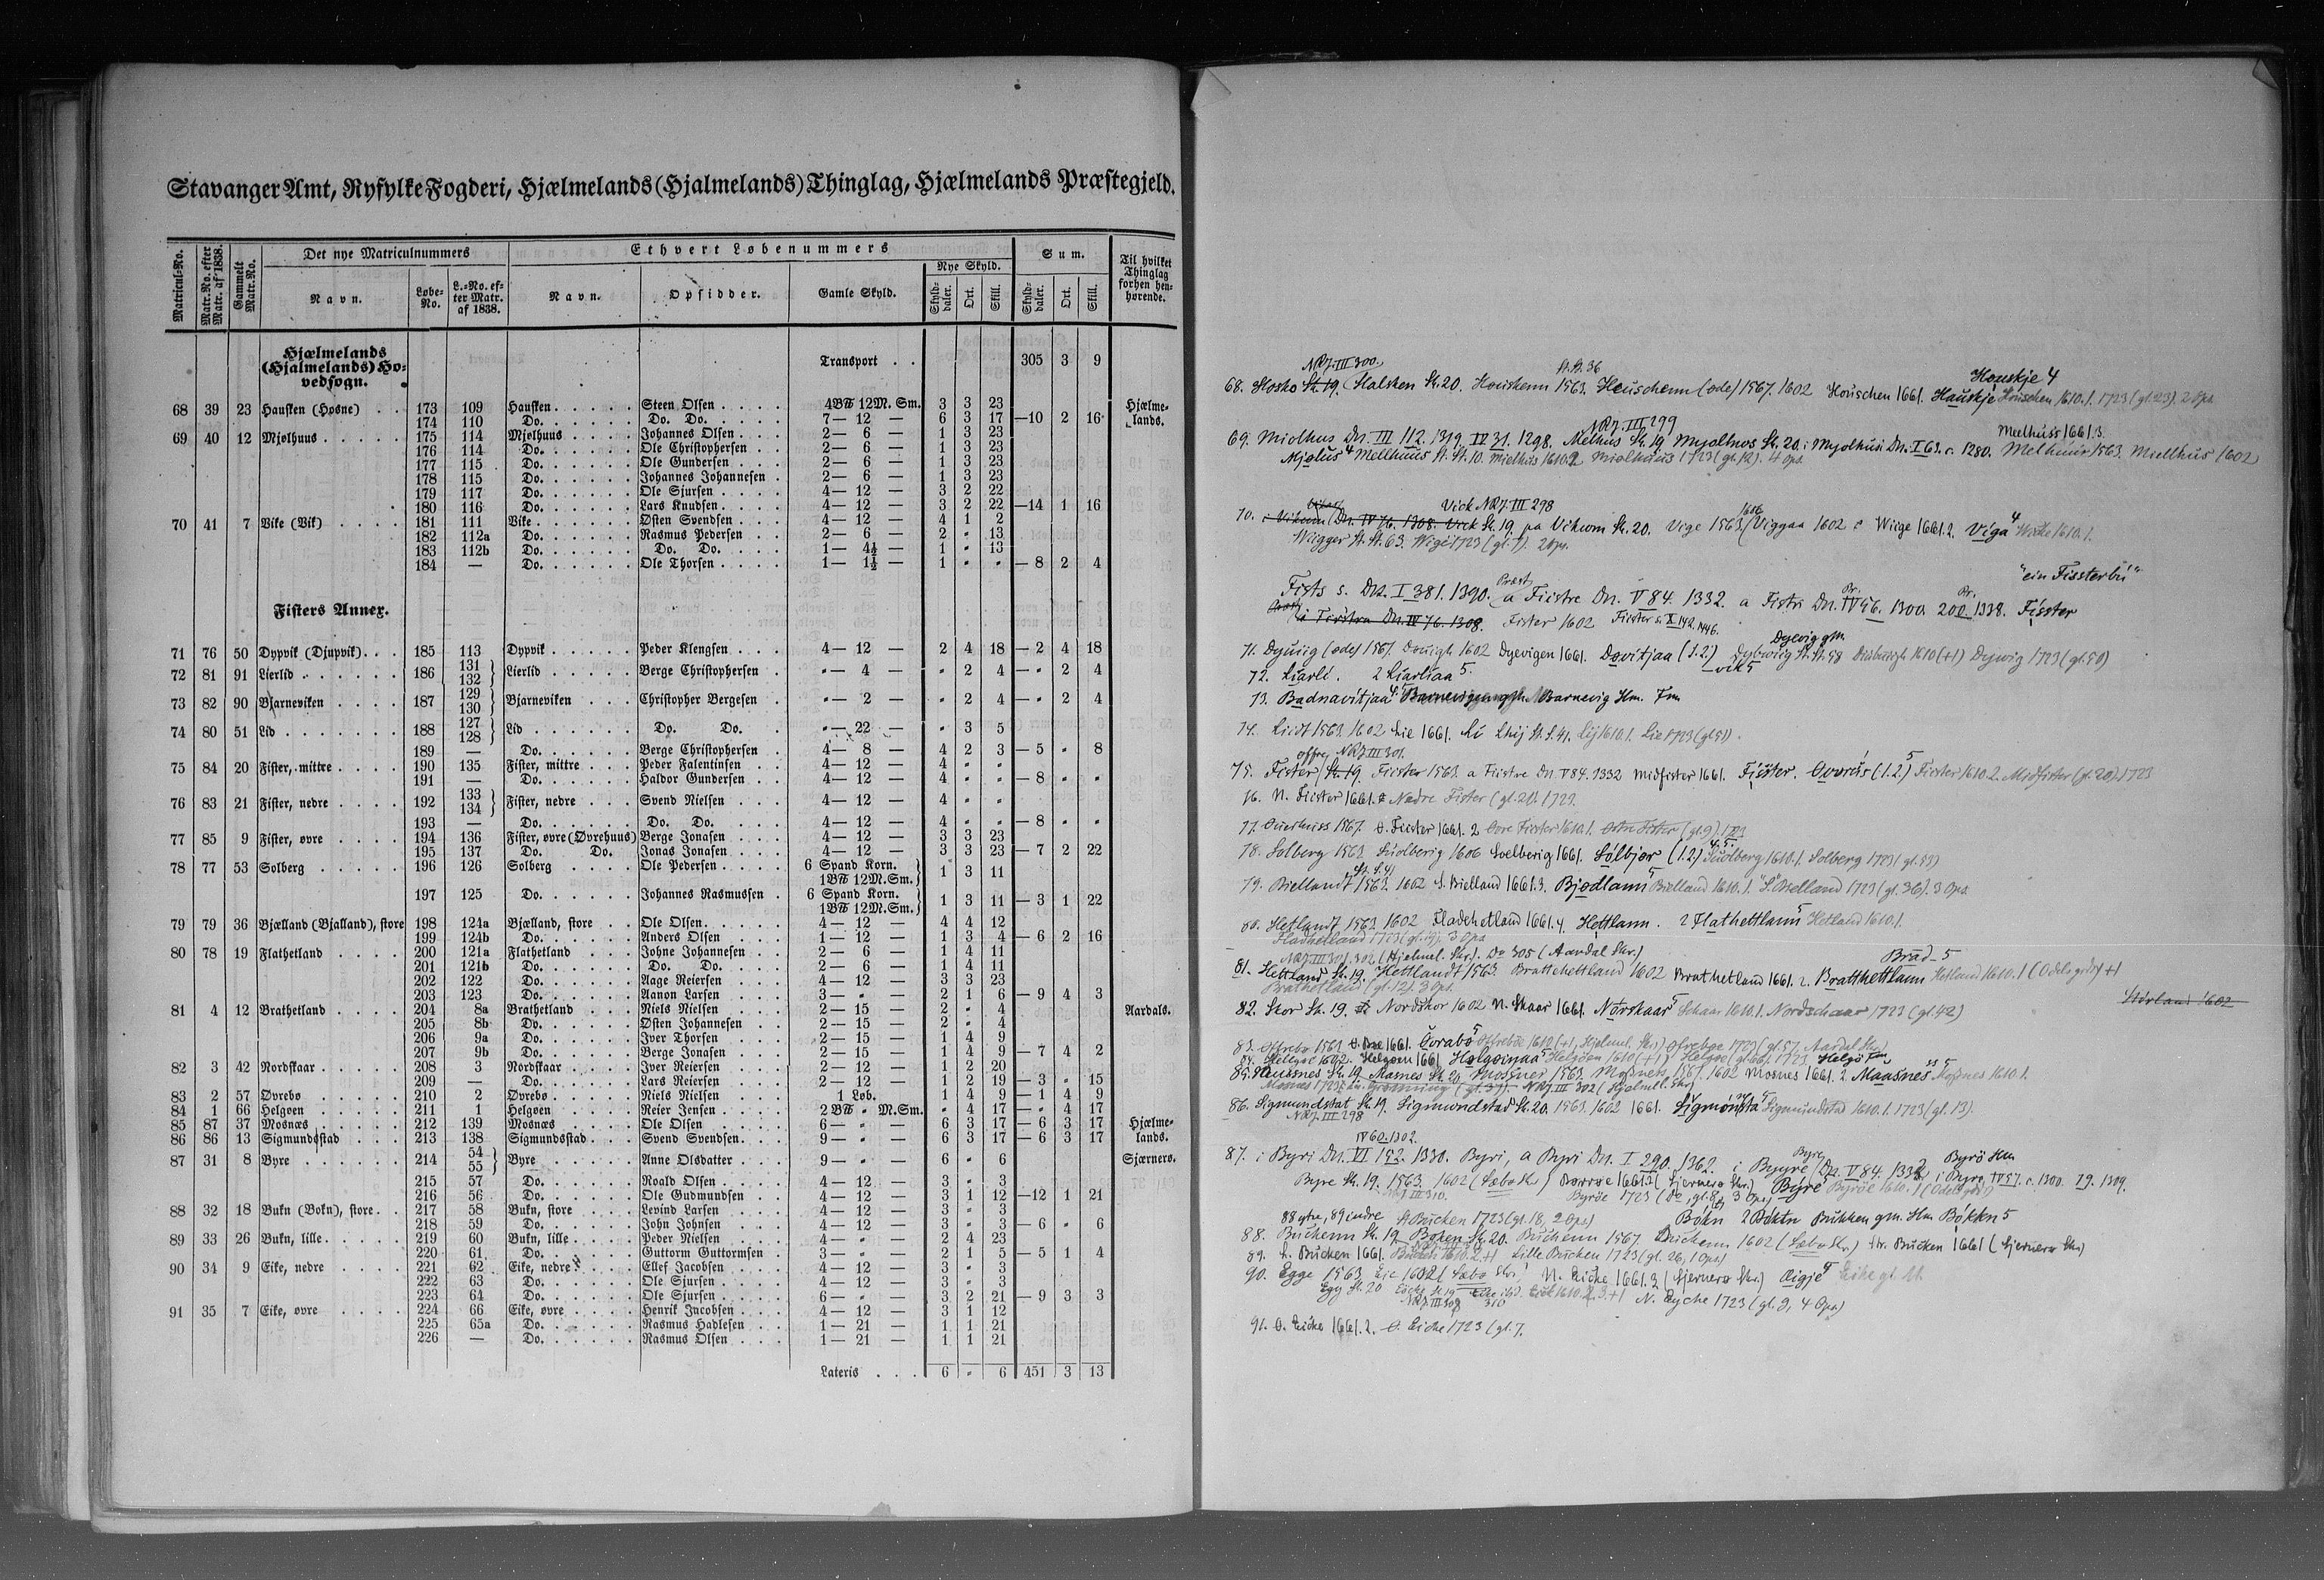 Stavanger Amt, Ryfylke Fogderi, Hjælmelands (Hjalmelands) Thinglag, Hjælmelands Præstegjeld.
Matricul-No. | Matr.No. efter Matr. af 1838. | Gammelt Matr.No. | Det nye Matriculnummers | Ethvert Løbenummers | Sum. | Til hvilket Thinglag forhen henhørende.
Navn. | Løbe-No. | L.-No. efter Matr. af 1838. | Navn. | Opsidder. | Gamle Skyld. | Nye Skyld. | Skylddaler. | Ort. | Skill. | Skylddaler. | Ort. | Skill.
Hjælmelands (Hjalmelands) Hovedsogn. Transport . . 305 3 9
68 39 23 Hausken (Høsne) . . 173 109 Hausken . . . . . Steen Olsen . . . . 4B℔ 12M. Sm. 3 3 23 Hjælmelands.
174 110 Do. . . . . . . Do. Do. . . . . . 7— 12 — 6 3 17 —10 2 16
69 40 12 Mjølhuus . . . . . 175 114 Mjølhuus . . . . Johannes Olsen . . . 2— 6 — 1 3 23
176 114 Do. . . . . . . Ole Christophersen . . 2— 6 — 1 3 23
177 115 Do. . . . . . . Ole Gundersen . . . 2— 6 — 1 3 23
178 115 Do. . . . . . . Johannes Johannesen . 2— 6 — 1 3 23
179 117 Do. . . . . . . Ole Sjursen . . . . 4— 12 — 3 2 22
180 116 Do. . . . . . . Lars Knudsen . . . . 4— 12 — 3 2 22 —14 1 16
70 41 7 Vike (Vik) . . . . 181 111 Vike . . . . . . . Østen Svendsen . . . 4— 12 — 4 1 2
182 112a Do. . . . . . . Rasmus Pedersen . . 2— 6 — 2 " 13
183 112b Do. . . . . . . Do. Do. . . . . 1— 4½ — 1 " 13
184 — Do. . . . . . . Ole Thorsen . . . . 1— 1½ — 1 " " — 8 2 4
Fisters Annex.
71 76 50 Dypvik (Djupvik) . . . 185 113 Dypvik . . . . . Peder Klengsen . . . 4— 12 — 2 4 18 — 2 4 18
72 81 91 Lierlid . . . . . . 186 131 132 } Lierlid . . . . . Berge Christophersen . "— 4 — " 2 4 — " 2 4
73 82 90 Bjarneviken . . . . 187 129 130 } Bjarneviken . . . Christopher Bergesen . "— 2 — " 2 4 — " 2 4
74 80 51 Lid . . . . . . . 188 127 128 } Lid . . . . . . Do. Do. . "— 22 — " 3 5
189 — Do. . . . . . . Berge Christophersen . 4— 8 — 4 2 3 — 5 " 8
75 84 20 Fister, mittre . . . . 190 135 Fister, mittre . . . Peder Falentinsen . . 4— 12 — 4 " "
191 — Do. . . . . . . Haldor Gundersen . . 4— 12 — 4 " " — 8 " "
76 83 21 Fister, nedre . . . . 192 133 134 } Fister, nedre . . . Svend Nielsen . . . 4— 12 — 4 " "
193 — Do. . . . . . . Do. Do. . . . 4— 12 — 4 " " — 8 " "
77 85 9 Fister, øvre . . . . 194 136 Fister, øvre (Øvrehuus) Berge Jonasen . . . 4— 12 — 3 3 23
195 137 Do. Do. Jonas Jonasen . . . 4— 12 — 3 3 23 — 7 2 22
78 77 53 Solberg . . . . . 196 126 Solberg . . . . Ole Pedersen . . . . 6 Spand Korn. 1B℔ 12M. Sm. } 1 3 11
197 125 Do. . . . . . . Johannes Rasmussen . 6 Spand Korn. 1B℔ 12M. Sm. } 1 3 11 — 3 1 22
79 79 36 Bjælland (Bjalland), store 198 124a Bjælland, store . . Ole Olsen . . . . . 4— 12 — 4 4 12
199 124b Do. . . . . . . Anders Olsen . . . 1— 12 — 1 3 4 — 6 2 16
80 78 19 Flathetland . . . . 200 121a Flathetland . . . Johne Johannesen . . 2— 6 — 1 4 11
201 121b Do. . . . . . . Do. Do. . . . 2— 6 — 1 4 11
202 122 Do. . . . . . . Aage Reiersen . . . 4— 12 — 3 3 23
203 123 Do. . . . . . . Aanon Larsen . . . 3— " — 2 1 6 — 9 4 3
81 4 12 Brathetland . . . . 204 8a Brathetland . . . Niels Nielsen . . . 2— 15 — 2 " 4 Aardals.
205 8b Do. . . . . . . Østen Johannesen . . 2— 15 — 2 " 4
206 9a Do. . . . . . . Iver Thorsen . . . 2— 15 — 1 4 9
207 9b Do. . . . . . . Berge Jonasen . . . 2— 15 — 1 4 9 — 7 4 2
82 3 42 Nordskaar . . . . . 208 3 Nordskaar . . . . Iver Reiersen . . . 2— 12 — 1 2 20
209 — Do. . . . . . . Lars Reiersen . . . 2— 12 — 1 2 19 — 3 " 15
83 2 57 Øvrebø . . . . . 210 2 Øvrebø . . . . . Niels Nielsen . . . 1 Løb. 1 4 9 — 1 4 9
84 1 66 Helgøen . . . . . 211 1 Helgøen . . . . Reier Jensen . . . . 2 B℔ " M.Sm. " 4 17 — " 4 17
85 87 37 Mosnæs . . . . . 212 139 Mosnæs . . . . Ole Olsen . . . . 6— " — 6 3 17 — 6 3 17 Hjælmelands.
86 86 13 Sigmundsstad . . . 213 138 Sigmundsstad . . . Svend Svendsen . . . 9— " — 6 3 17 — 6 3 17
87 31 8 Byre . . . . . . 214 54 55 } Byre . . . . . Anne Olsdatter . . . 9— " — 6 " 6 Sjærnerø.
215 57 Do. . . . . . . Roald Olsen . . . . 4— 12 — 3 " 3
216 56 Do. . . . . . . Ole Gudmundsen . . 4— 12 — 3 1 12 —12 1 21
88 32 18 Bukn (Bokn), store . . 217 58 Bukn, store . . . Levind Larsen . . . 4— 12 — 3 " 3
218 59 Do. . . . . . . John Johnsen . . . 4— 12 — 3 " 3 — 6 " 6
89 33 26 Bukn, lille . . . . . 219 60 Bukn, lille . . . . Peder Nielsen . . . 4— " — 2 4 23
220 61 Do. . . . . . . Guttorm Guttormsen . 3— " — 2 1 5 — 5 1 4
90 34 9 Eike, nedre . . . . 221 62 Eike, nedre . . . Ellef Jacobsen . . . 4— 12 — 3 " 3
222 63 Do. . . . . . . Ole Sjursen . . . . 4— 12 — 3 " 3
223 64 Do. . . . . . . Ole Sjursen . . . . 6— " — 3 2 21 — 9 3 3
91 35 7 Eike, øvre . . . . 224 66 Eike, øvre . . . . Henrik Jacobsen . . . 4— 12 — 3 1 12
225 65a Do. . . . . . . Rasmus Hadlesen . . 1— 21 — 1 1 21
226 — Do. . . . . . . Rasmus Olsen . . . 1— 21 — 1 1 21
Lateris . . . 6 " 6 451 3 13
NRJ. III 300. St. St. 36 Hauskje 4
68. Hosko St. 19. Halsken St. 20. Houskenn 1563. Heuschenn (øde) 1567. 1602 Houschen 1661. Hauskje Houschen 1610.1. 1723 (gl. 23). 2 Ops
NRJ. III 299 Meelhuss 1661.3.
69. Miolhus Dn. III 112. 1319. IV 31. 1298. Melhus St. 19 Myolhus St. 20. i Myolhusi Dn. I 63. c. 1280. Melhuus 1563. Miellhus 1602
Mjølus 4 Mellhuus St. St. 10. Mielhus 1610.2 Miolhuus 1723 (gl. 12). 4 Ops.
Vick NRJ. III 298
70. i Vikum Dn. IV 76. 1308. Vick St. 19 pa Vikom St. 20. Vige 1563 1606 Viggaa 1602 Wiige 1661.2. Viga 4 1610.1.
Wiigger St. St. 63. Wige 1723 (gl. 7). 2 Ops.
"ein Fissterbu"
Fists s. Dn. I 381. 1390. a Fiistre Dn. V 84. 1332. a Fistri Dn. IV 56. 1300. 200. 1338. Fisster
i Fistra Dn. IV 76. 1308. Fister 1602 Fiister X 142. 1446.
71. Dyuiig (øde) 1567. Douigh 1602 Dyevigen 1661. Døvitjaa (1.2.) St. St. 58 1610 (+1) Dywig 1723 (gl. 50)
Dyevig gm.
72. Liarli. 2 Liarliaa 5.
73. Badnavitjaa Barnevig Hm. Fm
74. Liidt 1563. 1602 Lie 1661. Li Lhij St. S. 41. Lij 1610.1. Lie 1723 (gl. 51).
offre NRJ III 301.
75. Fister St. 19 Fiister 1563. a Fiistre Dn. V 84. 1332 Midfister 1661. Fisster. Øvvrus (1.2.) 5 Fiester 1610.2. Midfister (gl. 20) 1723
76. N. Fiister 1661.2 Nedre Fister (gl. 21). 1723.
77. Øuerhuss 1567. Ø. Fiister 1661. 2 Øvre Fiister 1610.1. Østre Fister (gl. 9) 1723
78. Solberg 1563 Suolberig 1606 Soelberig 1661. Sølbjør (1.2.) 4.5. Suolberg 1610.1. Solberg 1723 (gl. 53)
79. Biellandt 1563. 1602 S. Bielland 1661.3. Bjødlann 5 Bielland 1610.1. "S." Bielland 1723 (gl. 36). 3 Ops.
80. Hetlandt 1563 1602 Fladehetland 1661.4 Hettlann. 2 Flathettlann 5 Hetland 1610.1.
Fladhetland 1723 (gl. 19). 3 Ops
NRJ III 301. 302 (Hjelmel. Skr.). Do 305 (Aardal Skr.) Brad_5
81. Hettland St. 19. Hettlandt 1563 Brattehettland 1602 Brathetland 1661.2. Bratthettlann Hetland 1610.1 (Odelsgods) +1
Brathetland (gl. 12). 3 Ops.
82. Skor St. 19. Nordskor 1602 N. Skaar 1661. Nørskaar 5 Schaar 1610.1. Nordschaar 1723 (gl. 42)
83. Øffrebø 1563 1661. Øvrabø 5 Offrebøe 1610 (+1, Hjelmel. Skr.) Øfrebøe 1723 (gl. 57. Aardal Skr.)
84. Helligøe 1602. Helgøen 1661 Hølgøinaa 5 Helgøen 1610 (+1) Helgøe (gl. 66). 1723 Helgø Fm
85. Mausnes St. 19 Masnes St. 20 Mossnes 1563 Mosnes 1567. 1602 Mosnes 1661. 2. Maasnes ss 5 Mosnes 1610.1.
Mosnes 1723 (gl. 37). NRJ III 302 (Hjelmel. Skr.)
86. Sigmundstat St. 19. Sigmundstad St. 20. 1563. 1602 1661. Sigmonsta Sigmundstad 1610.1. 1723 (gl. 13).
NRJ III 298
IV 60. 1302.
87. i Byri Dn. VI 152. 1330. Byri, a Byri Dn. I 290. 1362. i Byyre Dn. V 84. 1332 i Byre IV 57. c. 1300. 79. 1309. Byrö Hm
Byre St. 19. 1563. 1602 (Sæbø Skr.) Børrøe 1661.2 (Sjernerø Skr.) Byre 5 Byrøe 1610.1 (Odelsgods)
III 310. Byrøe 1723 (Do, gl. 8, 3 Ops)
88 ytre, 89 indre St. Bucken 1723 (gl. 18, 2 Ops) Bökn 2 Böktn Bukken gm. Hm Bökkn 5
88. Buckenn St. 19 Boken St. 20. Buchenn 1567 Buckenn 1602 (Sæbø Skr.) Str. Bucken 1661 (Sjernerø Skr.)
89. L. Bucken 1661. Bucken 1610.2.+1 Lille Bucken 1723 (gl. 26, 1 Ops.)
90. Egge 1563 Eie 1602 (Sæbø Skr.) N. Eiche 1661.3 (Sjernerø Skr.) Øigje 5 Eike gl. M.
Egg St. 20 N. Eyche 1723 (gl. 9, 4 Ops)
91. Ø. Eiche 1661.2. Ø. Eiche 1723 (gl. 7.